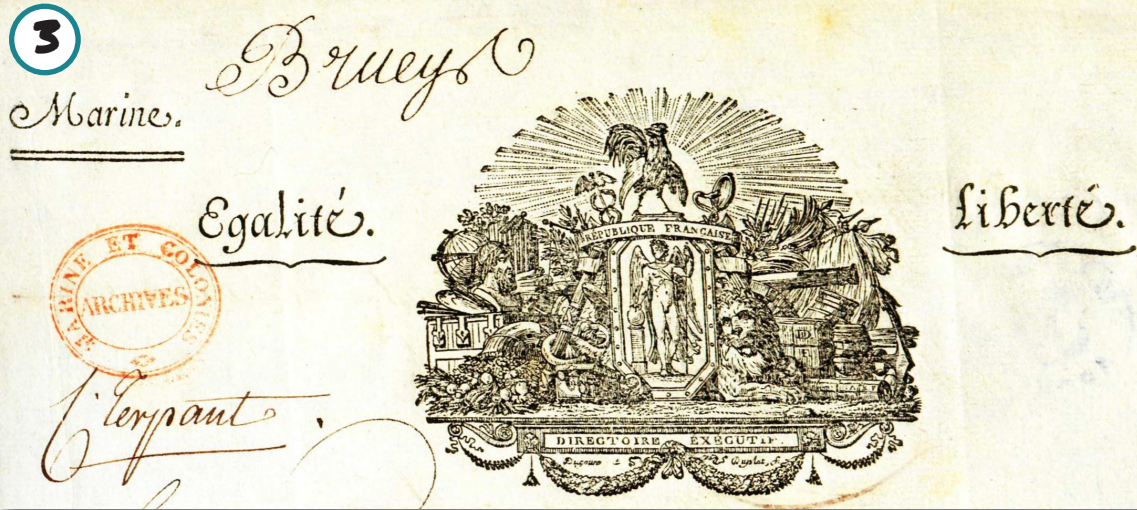 3
Brueys
Marine.
Egalité.
Liberté.
RÉPUBLIQUE FRANÇAISE
MARINE ET COLONIES
ARCHIVES
DIRECTOIRE EXÉCUTIF.